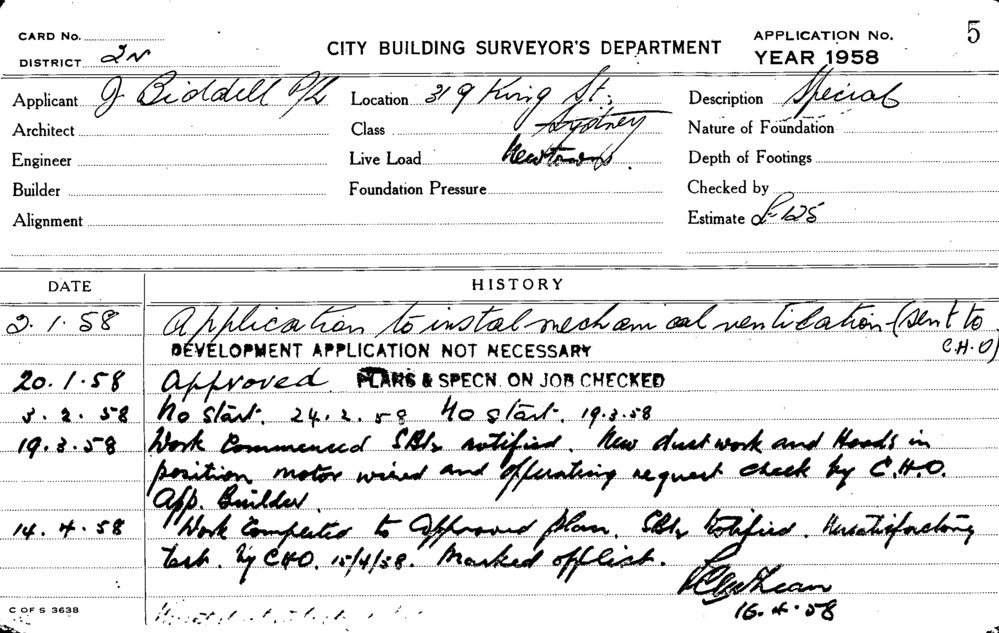 CARD No.
DISTRICT 2N
CITY BUILDING SURVEYOR'S DEPARTMENT
APPLICATION No. 5
YEAR 1958
Applicant J Biddell P/L Location 319 King St, Description Special
Architect Class Sydney Nature of Foundation
Engineer Live Load Newtown. Depth of Footings
Builder Foundation Pressure Checked by
Alignment Estimate £125
DATE HISTORY
2.1.58 Application to instal mechanical ventilation (sent to C.H.O)
DEVELOPMENT APPLICATION NOT NECESSARY
20.1.58 Approved PLANS & SPECN. ON JOB CHECKED
3.2.58 No Start. 24.2.58 No start. 19.3.58
19.3.58 Work Commenced notified. New duct work and Hoods in
position, motor wired and operating request check by C.H.O.
App. Builder.
14.4.58 Work Completed to Approved plan.
Test. by CHO. 15/4/58. Marked off list.
16.4.58
C OF S 3638